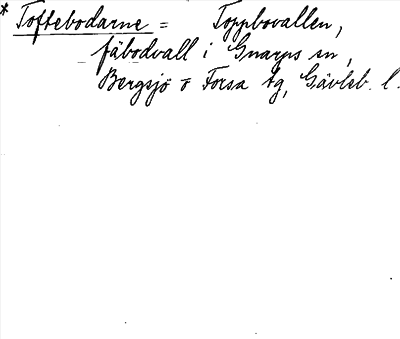 * Toftebodarne = Toppbovallen,
fäbodvall i Gnarps sn,
Bergsjö o Forsa tg, Gävleb. l.